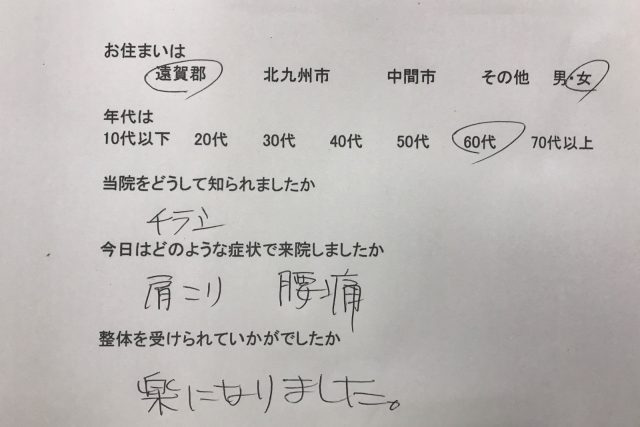 お住まいは
遠賀郡 北九州市 中間市 その他 男・女
年代は
10代以下 20代 30代 40代 50代 60代 70代以上
当院をどうして知られましたか
チラシ
今日はどのような症状で来院しましたか
肩こり 腰痛
整体を受けられていかがでしたか
楽になりました。